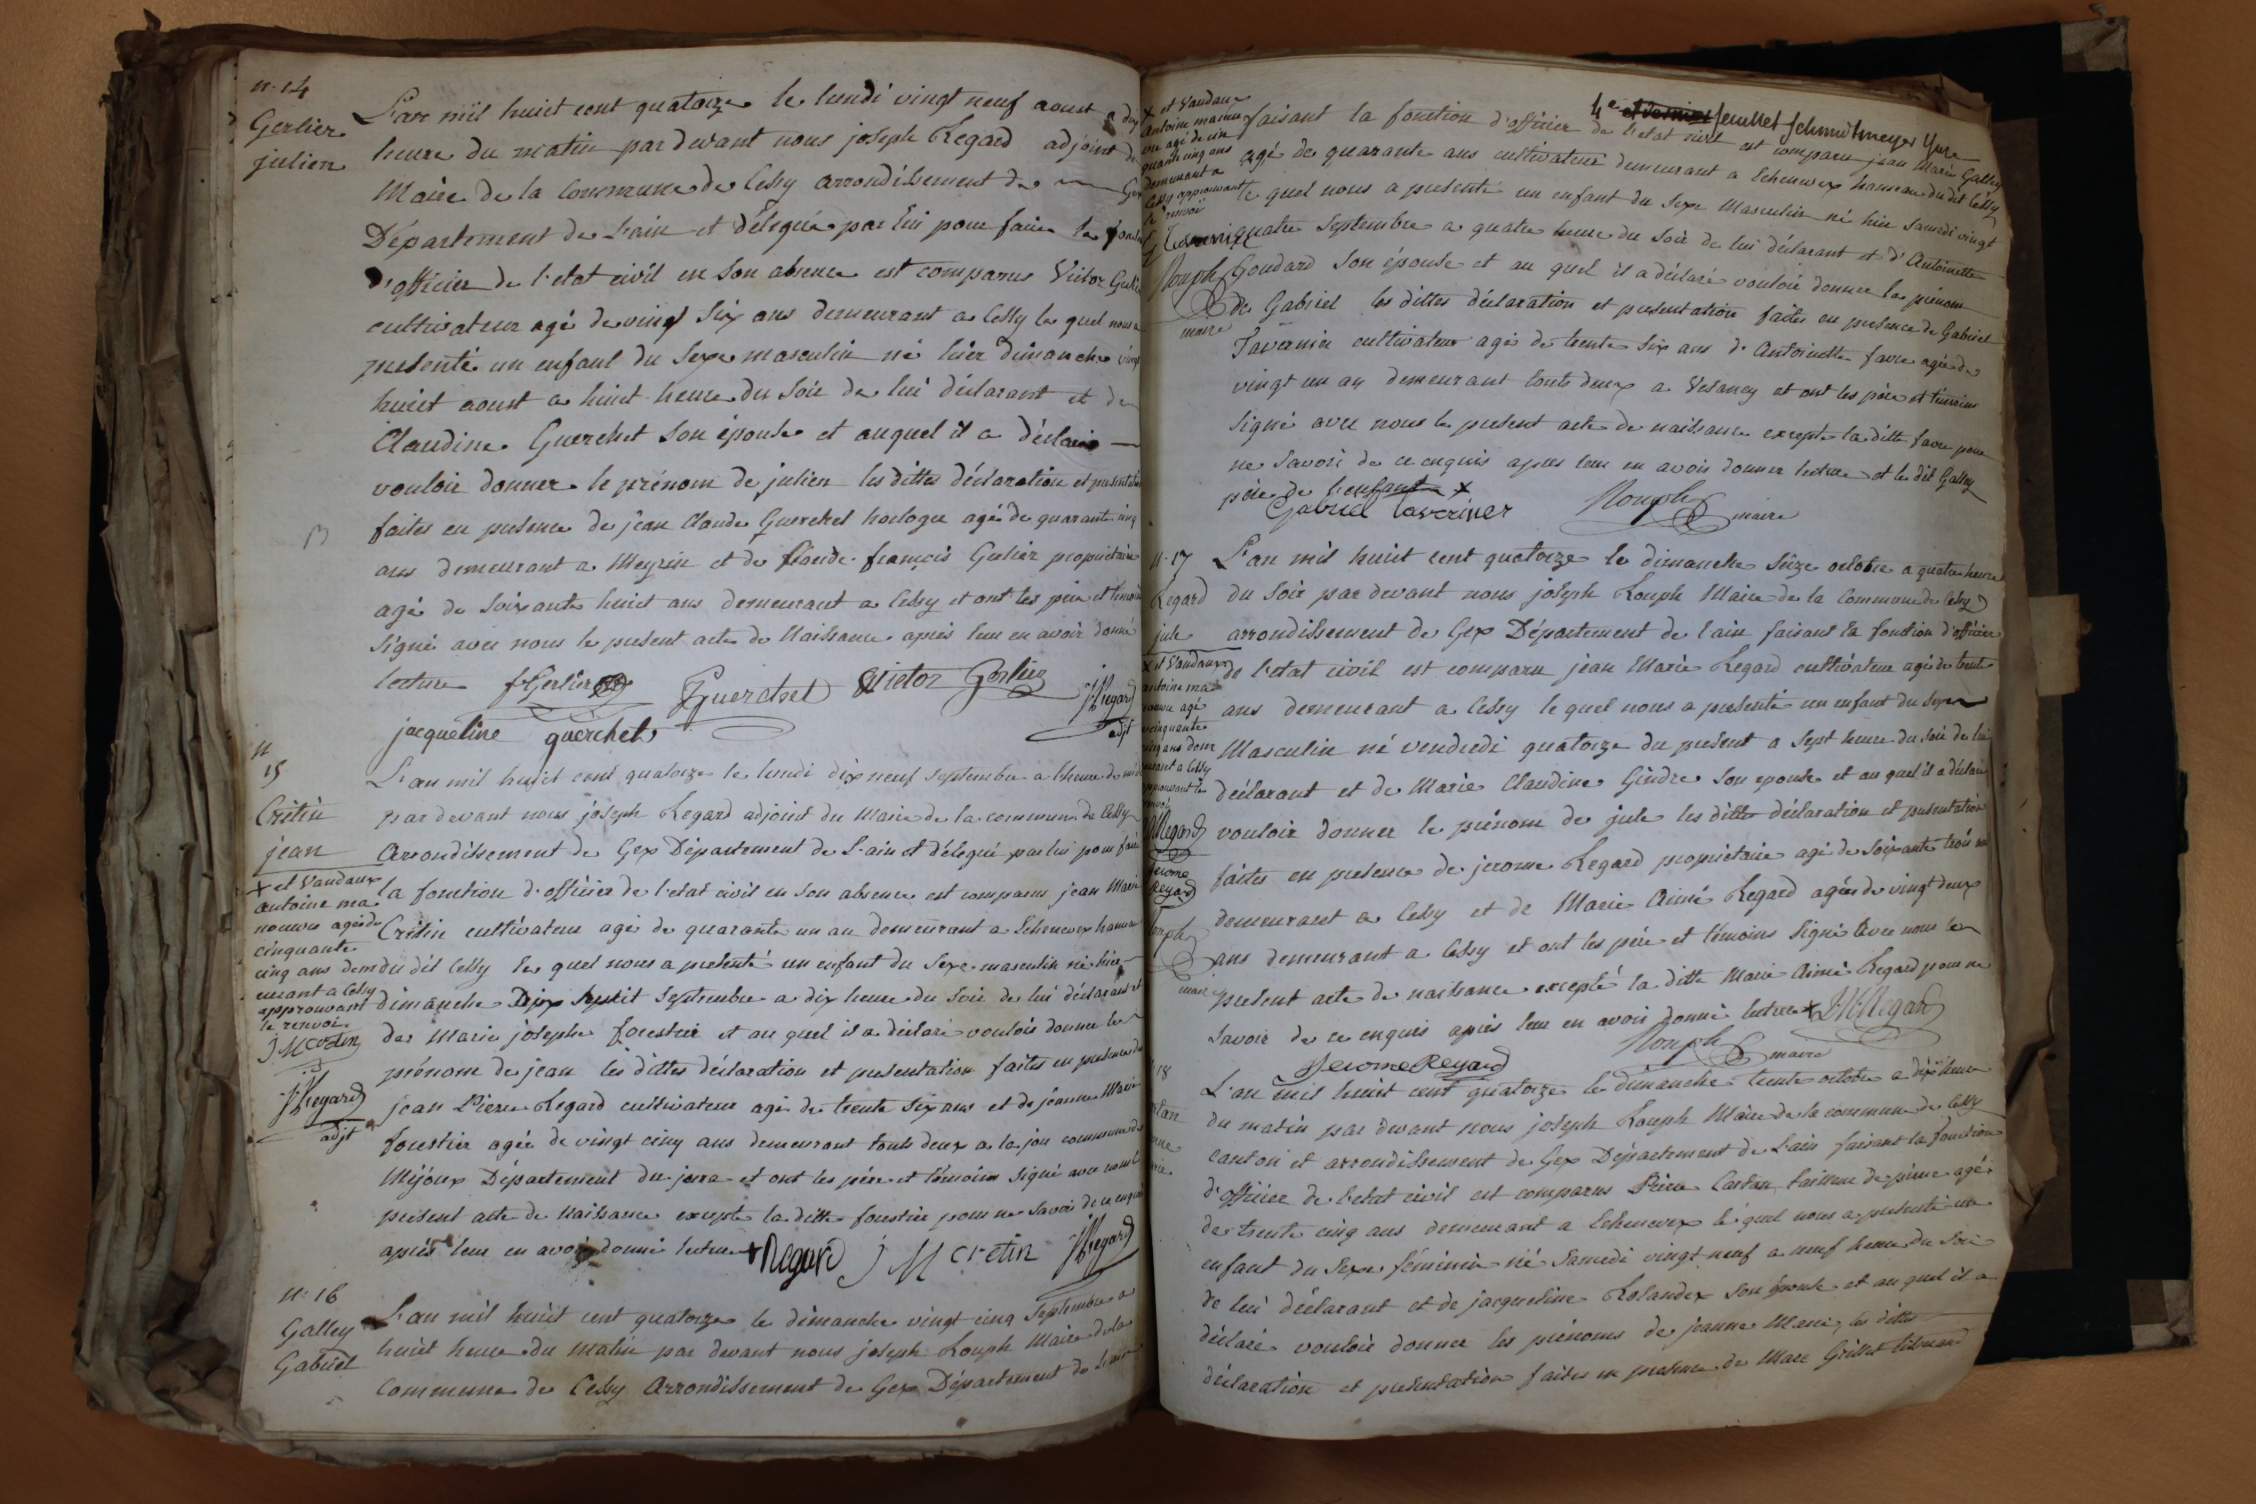 n. 14
Gerlier
julien
L'an mil huict cent quatorze le lundi vingt neuf aoust a dix
heure du matin par devant nous joseph Regard adjoint du
Maire de la Commune de Cessy arrondissement de Gex
Département de L'ain et délégué par lui pour faire la fonction
d'officier de l'etat civil en son absence est comparus Victor Gerlier
cultivateur agé de vingt six ans demeurant a Cessy le quel nous a
presenté un enfant du sexe masculin né hier dimanche vingt
huict aoust a huict heure du soir de lui déclarant et de
Claudine Guerchet son épouse et auquel il a déclaré
vouloir donner le prénom de julien les dittes déclaration et presentation
faites en presence de jean Claude Guerchet horloger agé de quarante cinq
ans demeurant a Meyrin et de Claude françois Gerlier propriétaire
agé de soixante huict ans demeurant a Cessy et ont les père et temoins
signé avec nous le present acte de Naissance après leur en avoir donné
lecture f Gerlier Guerchet Victor Gerlier J Regard
jacqueline guerchet adjt
n
15
Crétin
jean
L'an mil huict cent quatorze le lundi dix neuf septembre a l'heure de midi
par devant nous joseph Regard adjoint du Maire de la commune de Cessy
Arrondissement de Gex Département de L'ain et délégué par lui pour faire
la fonction d'officier de l'etat civil en son absence est comparus jean Marie
Crétin cultivateur agé de quarante un an demeurant a Echenevex hameau
du dit Cessy le quel nous a presenté un enfant du sexe masculin né hier
dimanche Dix huit septembre a dix heure du soir de lui déclarant et
de Marie josephe forestier et au quel il a déclaré vouloir donner le
prénom de jean les dittes déclaration et presentation faites en presence de
jean Pierre Regard cultivateur agé de trente six ans et de jeanne Marie
forestier agée de vingt cinq ans demeurant touts deux a lajou commune de
Mijoux Département du jura et ont les père et témoins signé avec nous le
present acte de Naissance excepté la ditte forestier pour ne savoir de ce enquis
après leur en avoir donné lecture + Regard J M cretin J Regard
+ et Vandaux
antoine ma
noeuvre agé de
cinquante
cinq ans dem
eurant a Cessy
approuvant
le renvoi
J M Cretin
J Regard
adjt
n. 16
Galley
Gabriel
L'an mil huict cent quatorze le dimanche vingt cinq septembre a
huict heure du matin par devant nous joseph Rouph Maire de la
commune de Cessy Arrondissement de Gex Département de L'ain
4e et dernier feuillet Schmidtmeyer
+ et Vandaux
antoine manoeu
vre agé de cin
quante cinq ans
demeurant a
Cessy approuvant
le renvoi
G Tavernier
Rouph
maire
faisant la fonction d'officier de l'etat civil est comparu jean Marie Galley
agé de quarante ans cultivateur demeurant a Echenevex hameau du dit Cessy
le quel nous a presenté un enfant du sexe Masculin né hier samedi vingt
quatre septembre a quatre heure du soir de lui déclarant et d'Antoinette
Goudard son épouse et au quel il a déclaré vouloir donner le prénom
de Gabriel les dittes déclaration et presentation faites en presence de Gabriel
Tavernier cultivateur agé de trente six ans d'Antoinette favre agée de
vingt un an demeurant touts deux a Vesancy et ont les père et témoins
signé avec nous le present acte de naissance excepté la ditte favre pour
ne savoir de ce enquis apres leur en avoir donner lecture et le dit Galley
père de l'enfant +
Gabriel Taverinier Rouph maire
n. 17
Regard
jule
L'an mil huict cent quatorze le dimanche seize octobre a quatre heure
du soir par devant nous joseph Rouph Maire de la Commune de Cessy
arrondissement de Gex Département de l'ain faisant la fonction d'officier
de l'etat civil est comparu jean Marie Regard cultivateur agé de trente
ans demeurant a Cessy le quel nous a presenté un enfant du sexe
Masculin né vendredi quatorze du present a sept heure du soir de lui
déclarant et de Marie Claudine Gindre son epouse et au quel il a déclaré
vouloir donner le prénom de jule les dittes déclaration et presentation
faites en presence de jerome Regard propriétaire agé de soixante trois ans
demeurant a Cessy et de Marie Aimé Regard agée de vingt deux
ans demeurant a Cessy et ont les père et témoins signé avec nous le
present acte de naissance excepté la ditte Marie Aimé Regard pour ne
savoir de ce enquis après leur en avoir donné lecture + J M Regard
Jerome Regard Rouph maire
+ et Vandaux
antoine ma
noeuvre agé
cinquante
cinq ans dem
eurant a Cessy
approuvant le
renvoi
J M Regard
jerome
Regard
Rouph
maire
18
L'an mil huict cent quatorze le dimanche trente octobre a dix heure
du matin par devant nous joseph Rouph Maire de la commune de Cessy
canton et arrondissement de Gex Département de L'ain faisant la fonction
d'officier de l'etat civil est comparus Pierre Carlan tailleur de pierre agé
de trente cinq ans demeurant a Echenevex le quel nous a presenté un
enfant du sexe féminin né samedi vingt neuf a neuf heure du soir
de lui déclarant et de jacqueline Rolandex son épouse et au quel il a
déclaré vouloir donner les prénoms de jeanne Marie, les dittes
déclaration et presentation faites en presence de Marc Grillet